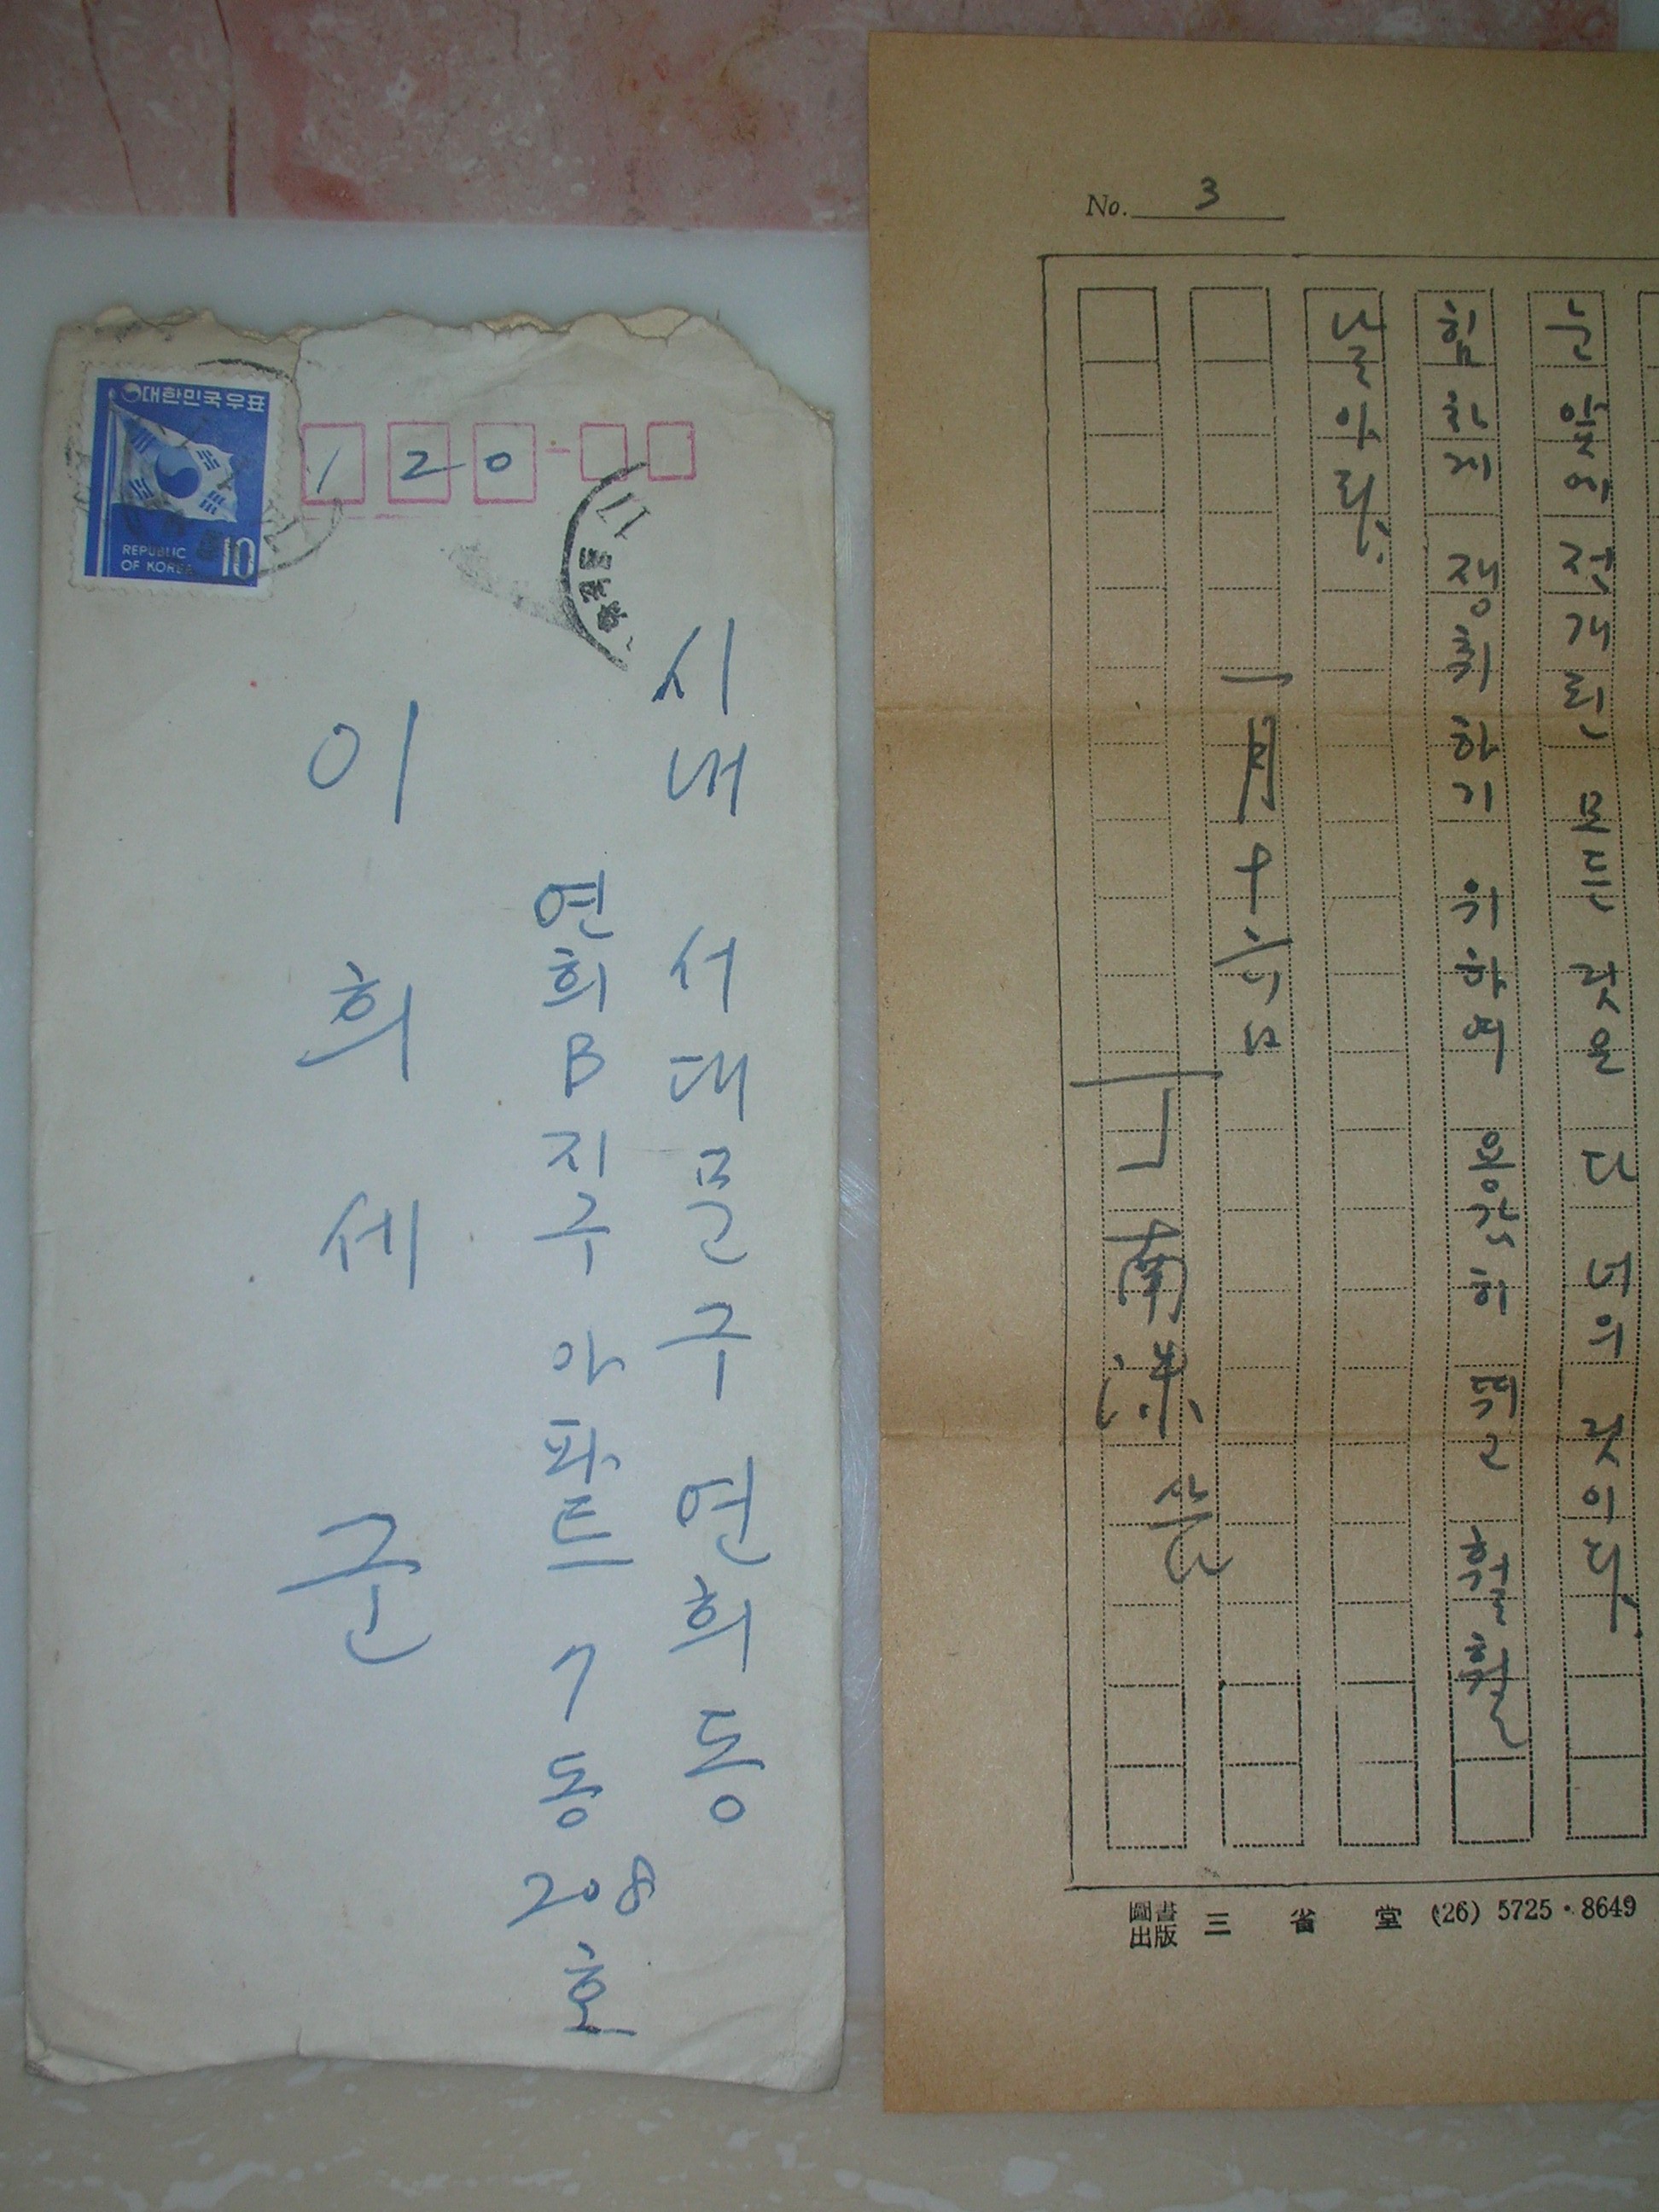 대한민국우표
REPUBLIC
OF KOREA
10
120
시내 서대문구 연희동
연희B지구 아파트 7동 208호
이희세 군
No. 3
눈앞에 전개된 모든 것은 다 너의 것이다.
힘차게 쟁취하기 위하여 용감히 뛰고 훨훨
날아라.
一月十六日
丁南洙 씀
圖書出版 三省堂 (26) 5725·8649